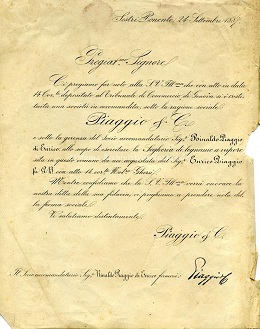 Sestri Ponente, 24 Settembre 188
Pregiat.mo Signore
Ci pregiamo far noto alla S.V. Ill.ma che con atto in data
14 Corr. depositato al Tribunale di Commercio di Genova si è costi-
tuita una società in accomandita, sotto la ragione sociale
Piaggio & C.
e sotto la gerenza del socio accomandatario Sig. Rinaldo Piaggio
di Enrico allo scopo di esercitare la Segheria di legname a vapore
in questo comune da me Sig. Enrico Piaggio
fu con atto 14 corr. Not.
Mentre confidiamo che la S.V. Ill.ma vorrà onorare la
nostra ditta della sua fiducia, vi preghiamo a prendere nota del-
la firma sociale.
Vi salutiamo distintamente.
Piaggio & C.
Il Socio accomandatario Sig. Rinaldo Piaggio di Enrico firmerà:
Piaggio &C